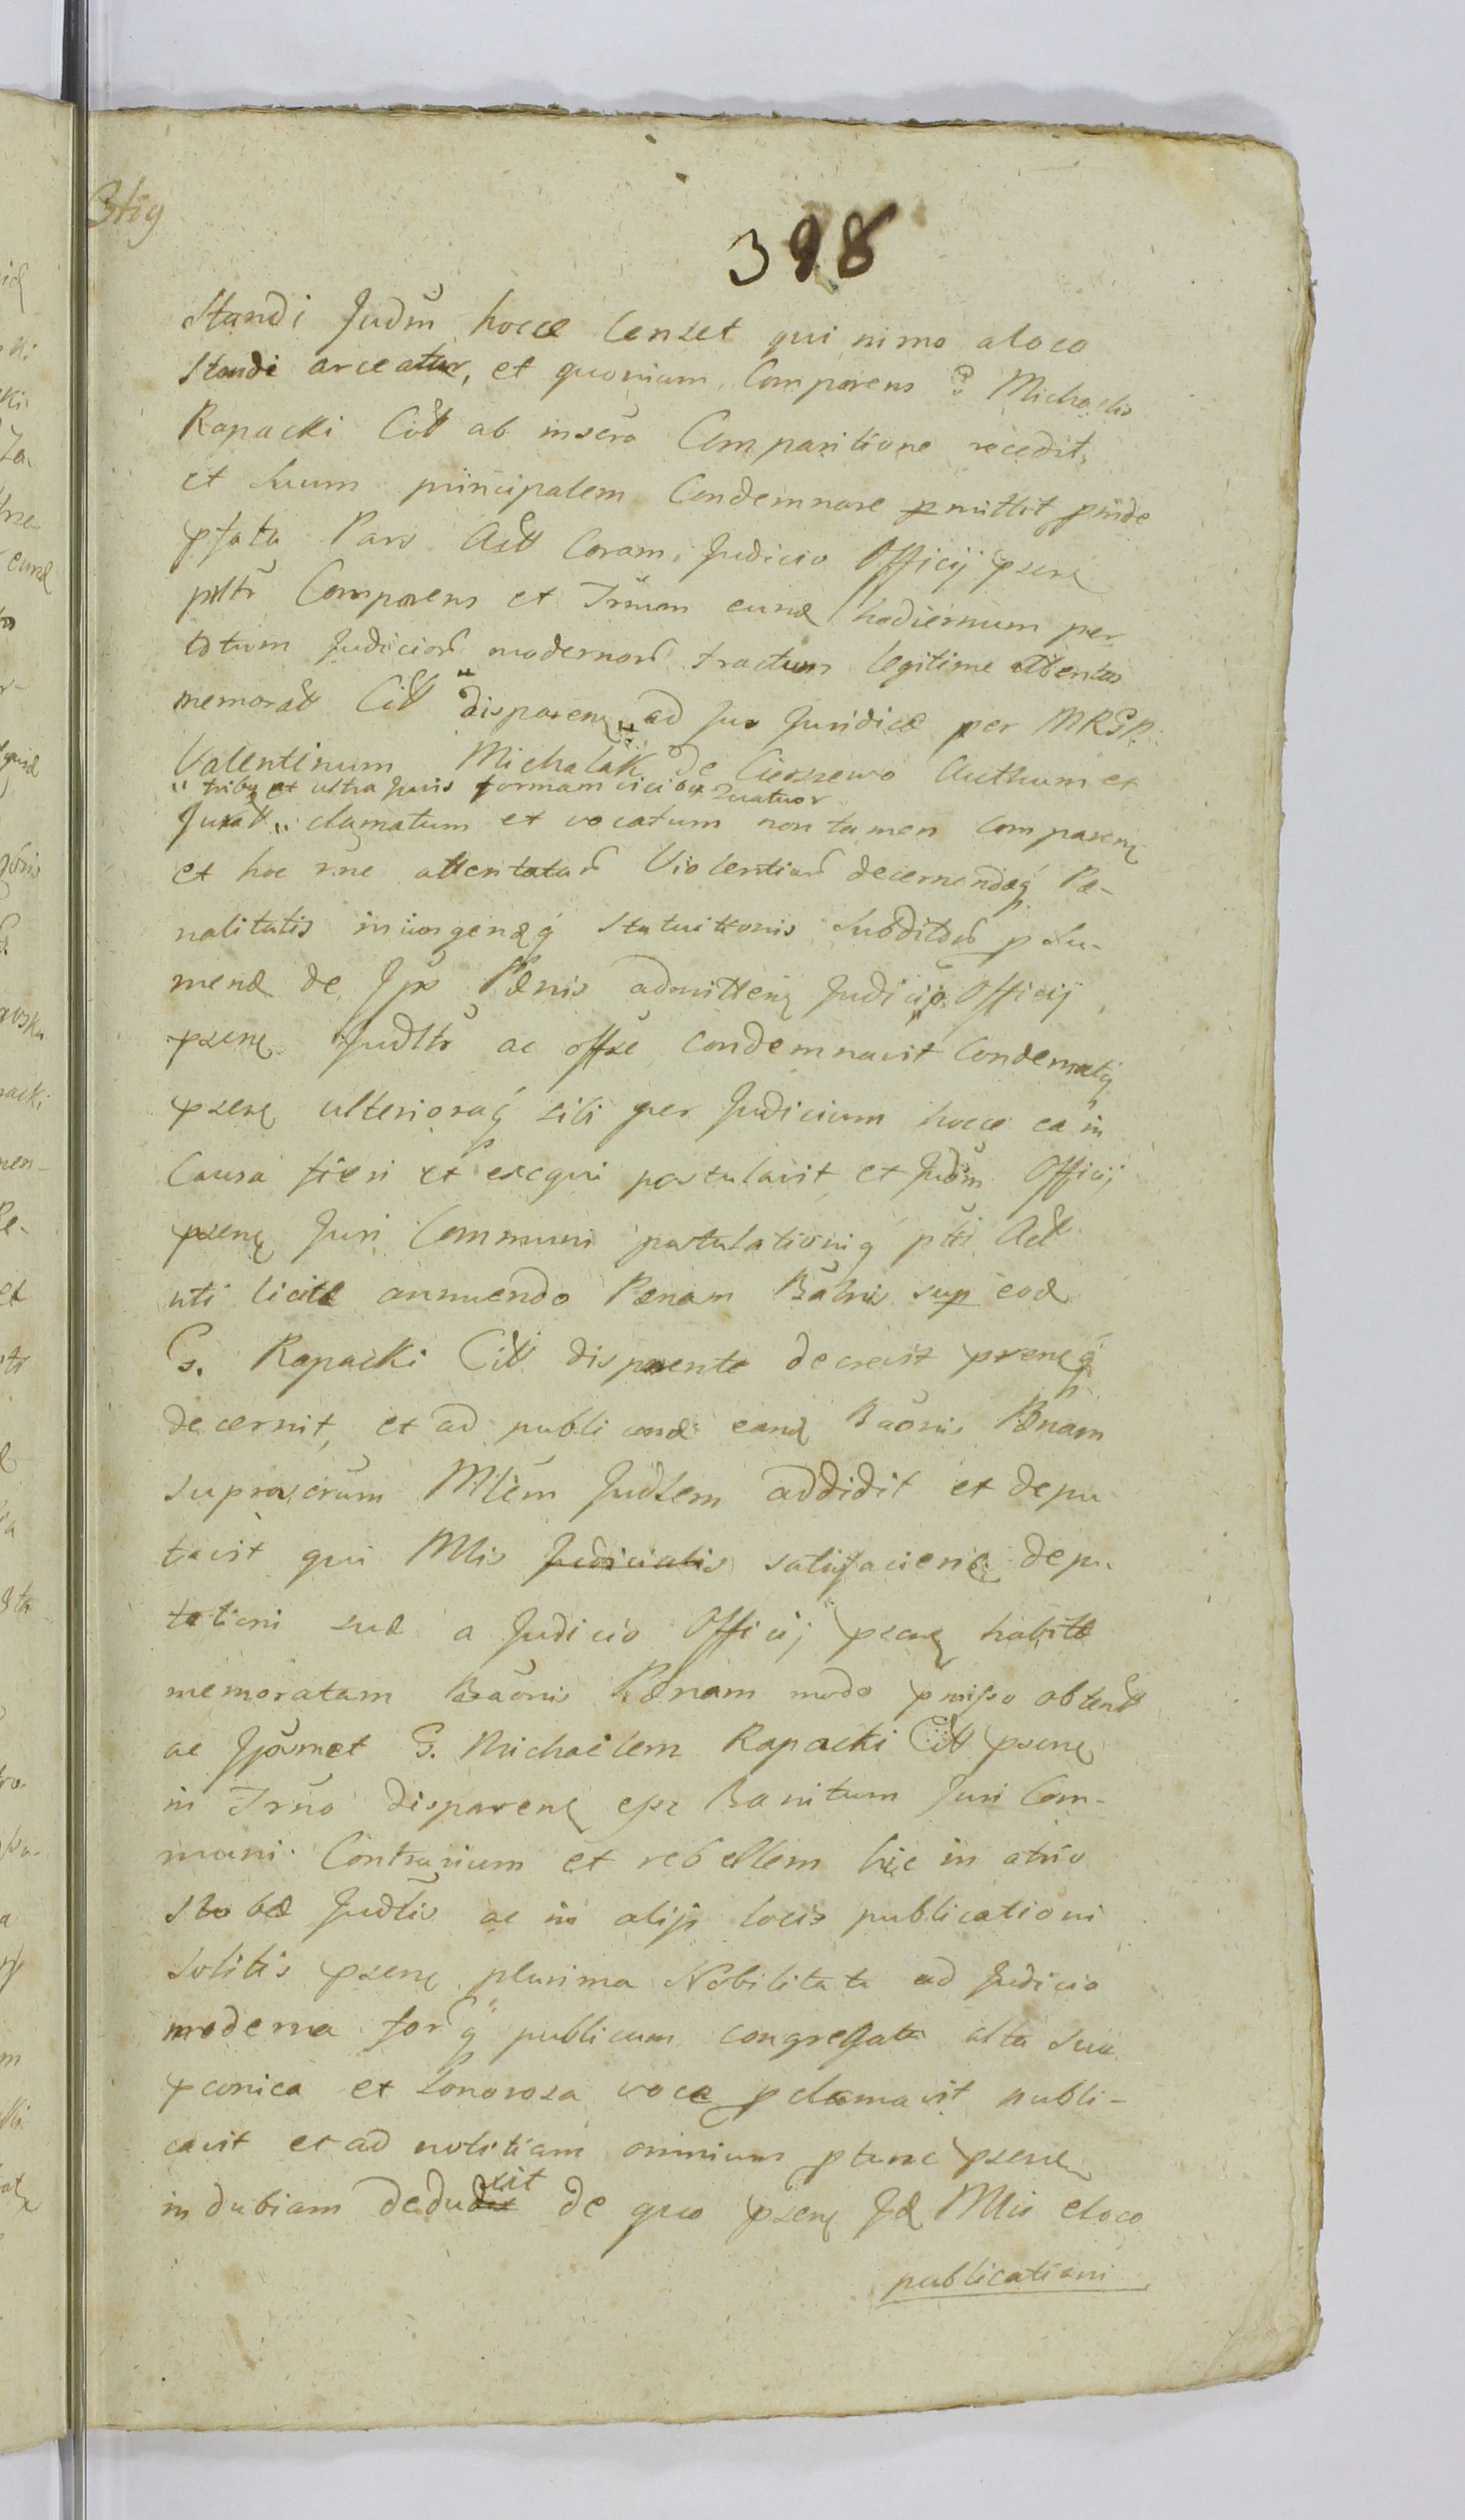 398
Standi Judm hocce censet qui nimo a loco
Standi arceatur, et quoniam Comparens G. Michaelis
Rapacki Citt ab inscro Comparitione recedit,
et suum principalem Condemnare pmittit pinde
pfata Pars Actt Coram Judicio Officij psen
psltr Comparens et Trnum eund hodiernum per
totum Judicior modernor tractum legitime attentas
memorat Citt disparen ad Jus Juridice per MRGP.
Valentinum Michalak de Cieszewo Authum et
" tribus et ultra Juris formam vicibus quatuor
Jurat " clamatum et vocatum non tamen comparen
et hoc rne attentatar Violentiar decernendaq Pæ-
nalitatis iniungenæq Statuitionis Subditor p su-
mend de Jps Pænis admitten Judicio Officij
psen Judltr ac offse condemnavit Condemnatq
psen ulterioraq sibi per Judicium hocce ea in
Causa fieri et exequi postulavit et Judm Officij
psen Juri Communi postulationiq pti Act
uti licitæ annuendo Pænam Baõnis sup eod
G. Rapacki Citt disparente decrevit psenq
decernit, et ad publicand eand Baõnis Pænam
suprascrum Mlem Judlem addidit et depu
tavit qui Mlis Judicialis satisfacien depu
tationi suæ a Judicio Officij psen habitæ
memoratam Baõnis Pænam modo pmisso obtent
ac Jpsmet G. Michaelem Rapacki Citt psen
in Trno disparen esse Banitum Juri Com-
muni Contrarium et rebellem hic in atrio
Stobæ Judlis ac in alijs locis publicationi
solitis psen plurima Nobilitate ad Judicia
moderna forq publicum congregata alta sua
pconica et sonorosa voce pclamavit publi-
cavit et ad notitiam omnium ptunc psen
indubiam deduxit de quo psen Jd Mlis eloco
publicationi